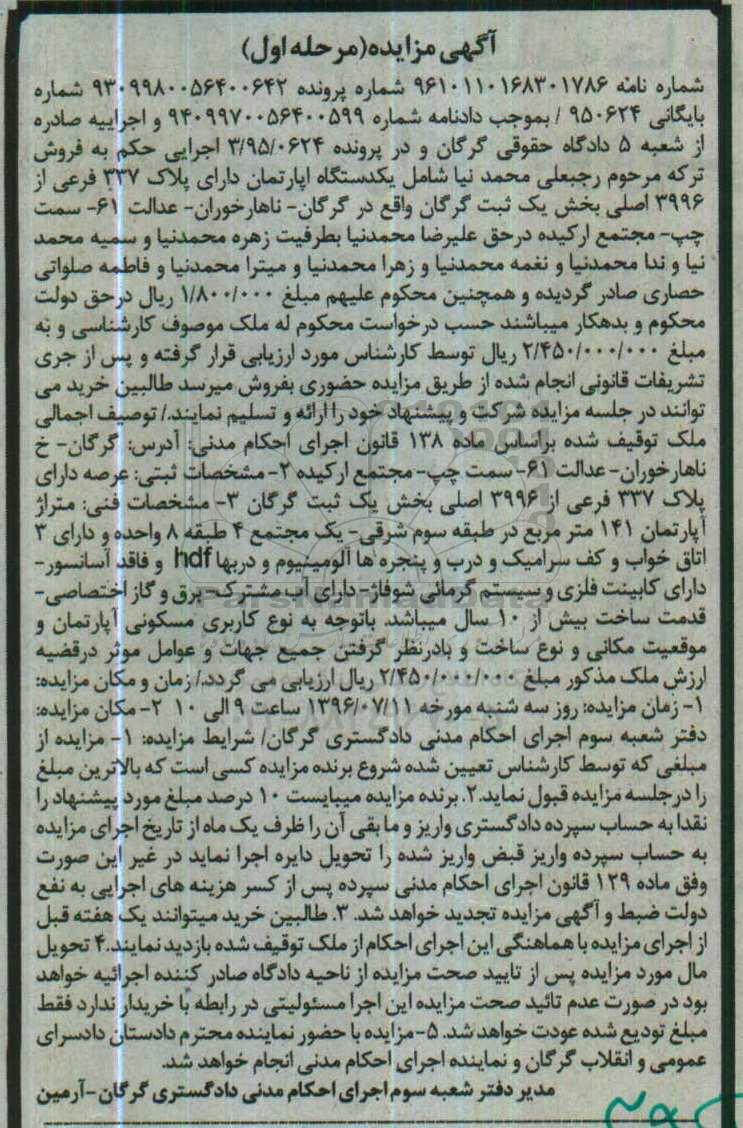 آگهی مزایده(مرحله اول)
شماره نامه ۹۶۱۰۱۱۰۱۶۸۳۰۱۷۸۶ شماره پرونده ۹۳۰۹۹۸۰۰۵۶۴۰۰۶۴۲ شماره
بایگانی ۹۵۰۶۲۴ / بموجب دادنامه شماره ۹۴۰۹۹۷۰۰۵۶۴۰۰۵۹۹ و اجراییه صادره
از شعبه ۵ دادگاه حقوقی گرگان و در پرونده ۳/۹۵/۰۶۲۴ اجرایی حکم به فروش
ترکه مرحوم رجبعلی محمد نیا شامل یکدستگاه اپارتمان دارای پلاک ۳۳۷ فرعی از
۳۹۹۶ اصلی بخش یک ثبت گرگان واقع در گرگان- ناهارخوران- عدالت ۶۱- سمت
چپ- مجتمع ارکیده درحق علیرضا محمدنیا بطرفیت زهره محمدنیا و سمیه محمد
نیا و ندا محمدنیا و نغمه محمدنیا و زهرا محمدنیا و میترا محمدنیا و فاطمه صلواتی
حصاری صادر گردیده و همچنین محکوم علیهم مبلغ ۱/۸۰۰/۰۰۰ ریال درحق دولت
محکوم و بدهکار میباشند حسب درخواست محکوم له ملک موصوف کارشناسی و به
مبلغ ۲/۴۵۰/۰۰۰/۰۰۰ ریال توسط کارشناس مورد ارزیابی قرار گرفته و پس از جری
تشریفات قانونی انجام شده از طریق مزایده حضوری بفروش میرسد طالبین خرید می
توانند در جلسه مزایده شرکت و پیشنهاد خود را ارائه و تسلیم نمایند./ توصیف اجمالی
ملک توقیف شده براساس ماده ۱۳۸ قانون اجرای احکام مدنی: آدرس: گرگان- خ
ناهارخوران- عدالت ۶۱- سمت چپ- مجتمع ارکیده ۲- مشخصات ثبتی: عرصه دارای
پلاک ۳۳۷ فرعی از ۳۹۹۶ اصلی بخش یک ثبت گرگان ۳- مشخصات فنی: متراژ
آپارتمان ۱۴۱ متر مربع در طبقه سوم شرقی- یک مجتمع ۴ طبقه ۸ واحده و دارای ۳
اتاق خواب و کف سرامیک و درب و پنجره ها آلومینیوم و دربها hdf و فاقد آسانسور-
دارای کابینت فلزی و سیستم گرمائی شوفاژ- دارای آب مشترک- برق و گاز اختصاصی-
قدمت ساخت بیش از ۱۰ سال میباشد. باتوجه به نوع کاربری مسکونی آپارتمان و
موقعیت مکانی و نوع ساخت و بادرنظر گرفتن جمیع جهات و عوامل موثر درقضیه
ارزش ملک مذکور مبلغ ۲/۴۵۰/۰۰۰/۰۰۰ ریال ارزیابی می گردد./ زمان و مکان مزایده:
۱- زمان مزایده: روز سه شنبه مورخه ۱۳۹۶/۰۷/۱۱ ساعت ۹ الی ۱۰ ۲- مکان مزایده:
دفتر شعبه سوم اجرای احکام مدنی دادگستری گرگان/ شرایط مزایده: ۱- مزایده از
مبلغی که توسط کارشناس تعیین شده شروع برنده مزایده کسی است که بالاترین مبلغ
را درجلسه مزایده قبول نماید.۲. برنده مزایده میبایست ۱۰ درصد مبلغ مورد پیشنهاد را
نقدا به حساب سپرده دادگستری واریز و مابقی آن را ظرف یک ماه از تاریخ اجرای مزایده
به حساب سپرده واریز قبض واریز شده را تحویل دایره اجرا نماید در غیر این صورت
وفق ماده ۱۲۹ قانون اجرای احکام مدنی سپرده پس از کسر هزینه های اجرایی به نفع
دولت ضبط و آگهی مزایده تجدید خواهد شد. ۳. طالبین خرید میتوانند یک هفته قبل
از اجرای مزایده با هماهنگی این اجرای احکام از ملک توقیف شده بازدید نمایند.۴ تحویل
مال مورد مزایده پس از تایید صحت مزایده از ناحیه دادگاه صادر کننده اجرائیه خواهد
بود در صورت عدم تائید صحت مزایده این اجرا مسئولیتی در رابطه با خریدار ندارد فقط
مبلغ تودیع شده عودت خواهد شد. ۵- مزایده با حضور نماینده محترم دادستان دادسرای
عمومی و انقلاب گرگان و نماینده اجرای احکام مدنی انجام خواهد شد.
مدیر دفتر شعبه سوم اجرای احکام مدنی دادگستری گرگان -آرمین